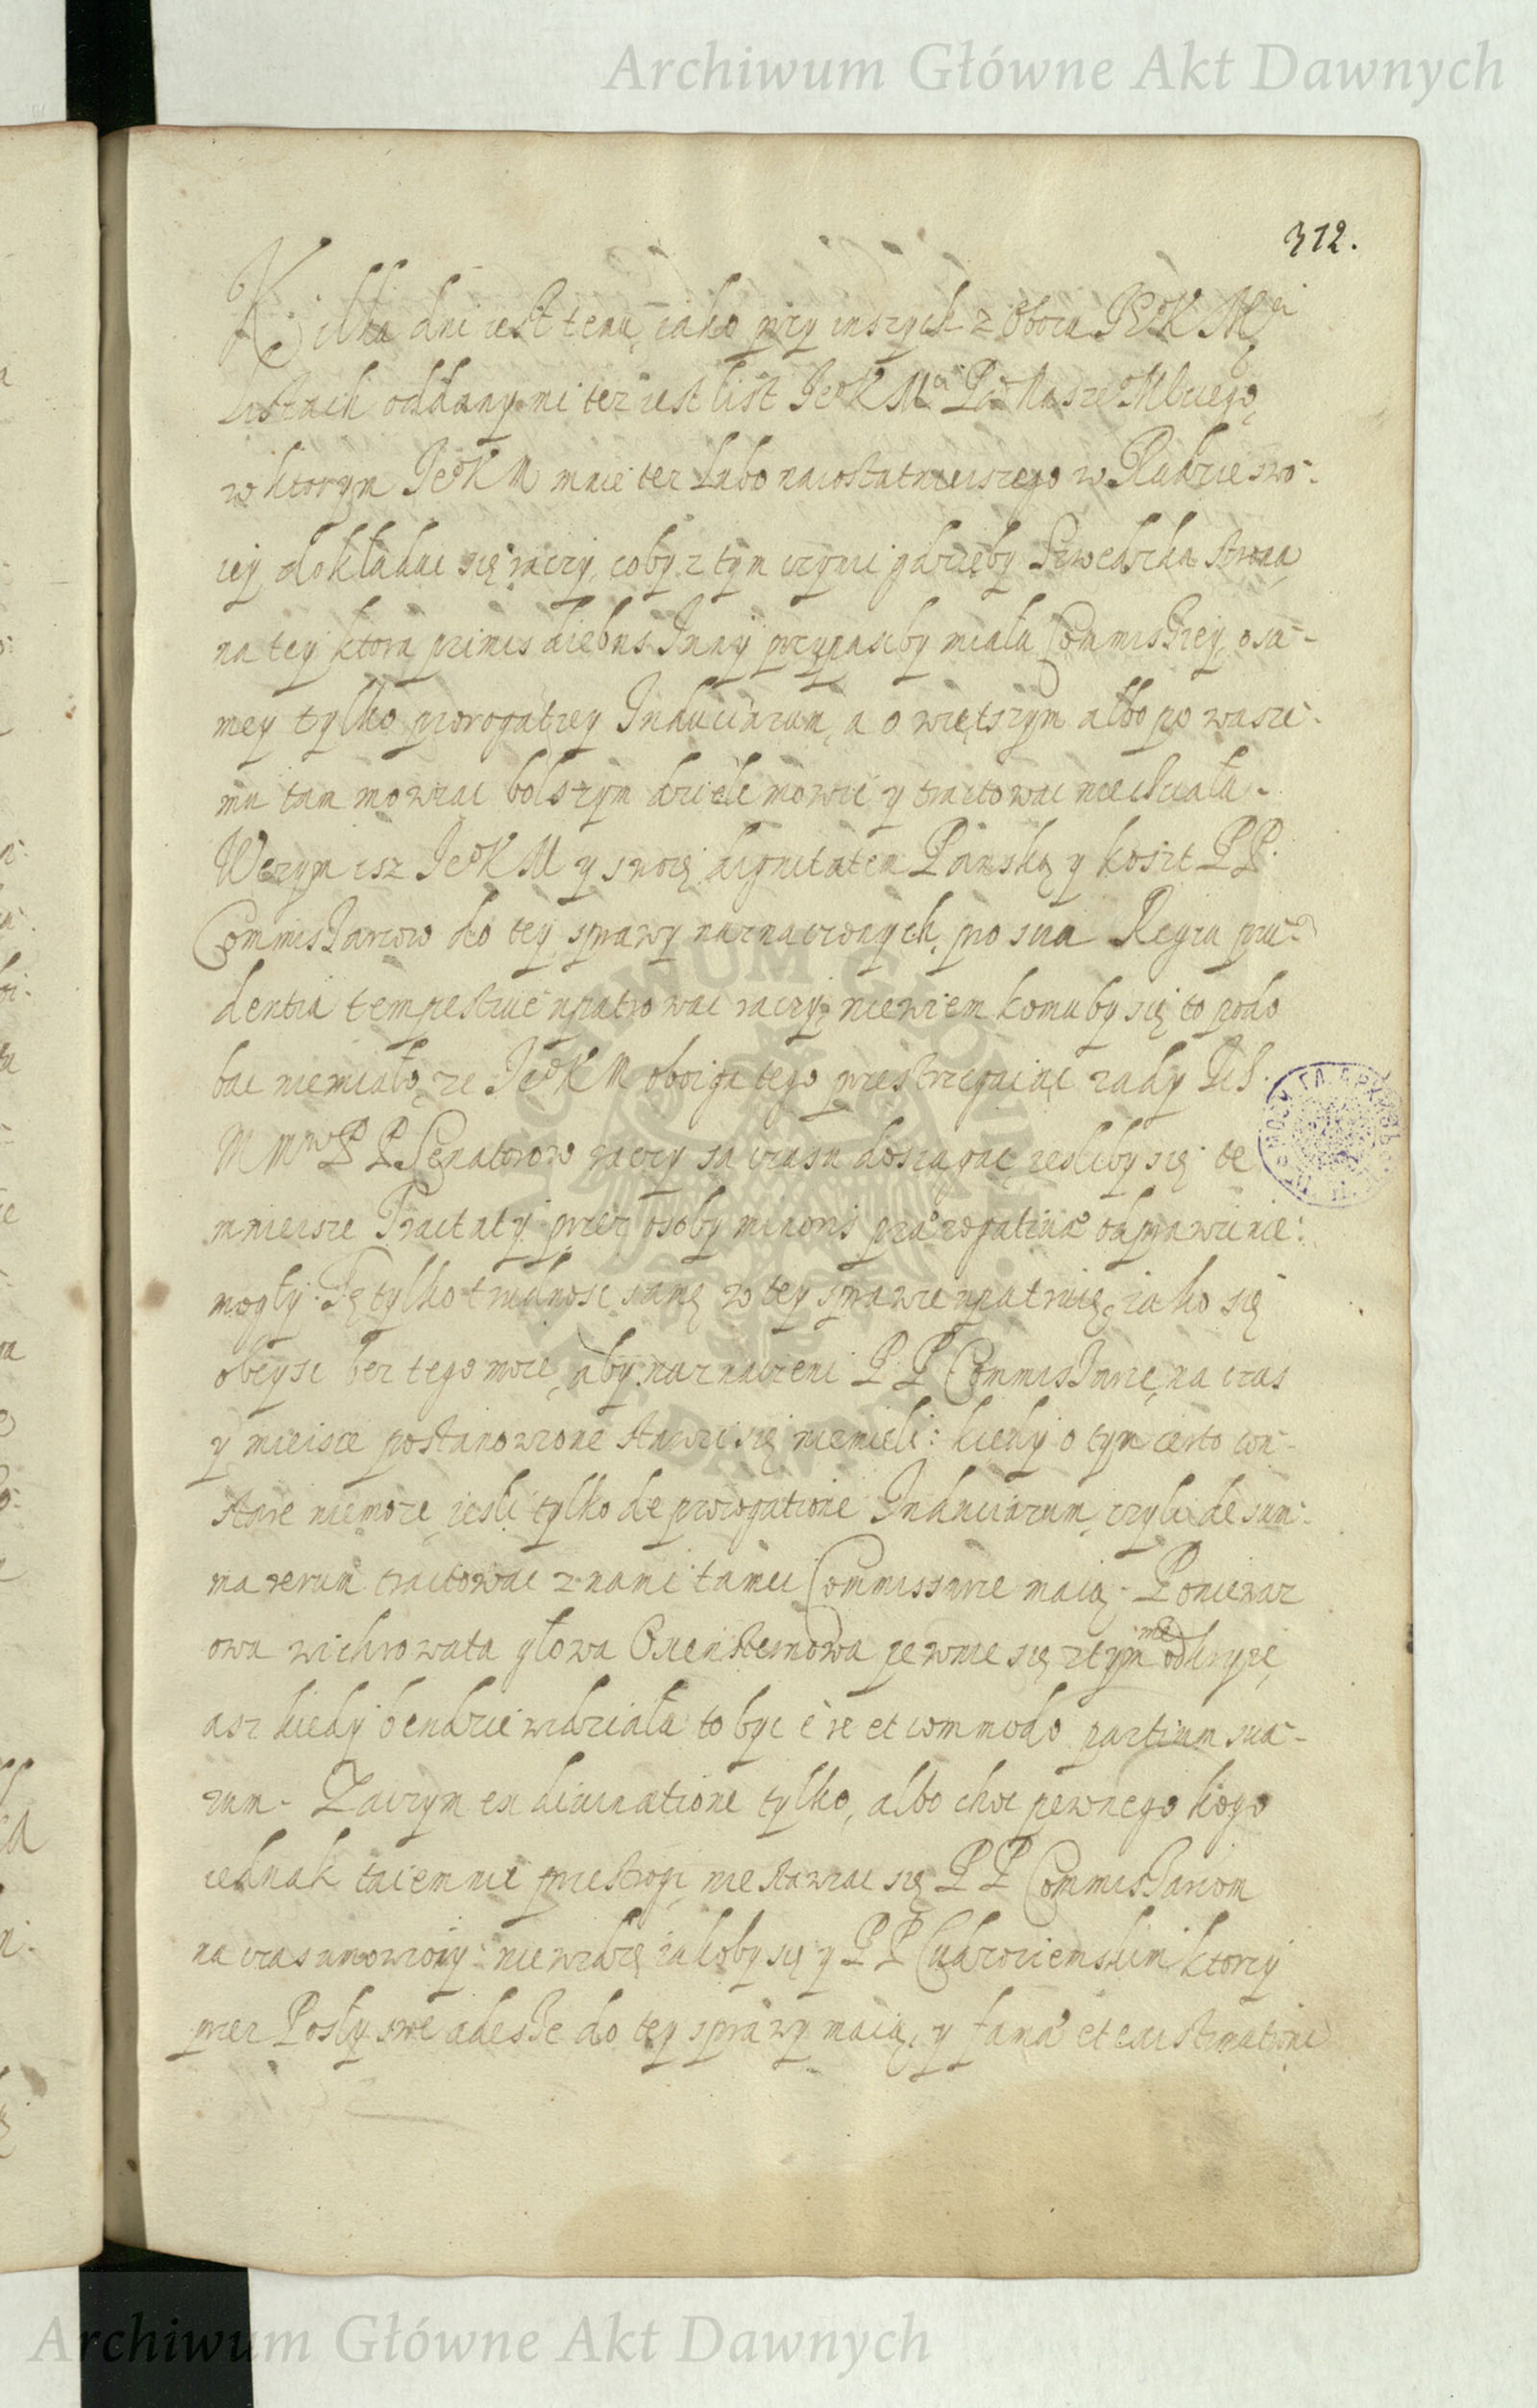 Archiwum Główne Akt Dawnych
312.
Kilka dni iest temu, iako przy inszych z Obozu Je⁰ K Mci
listach oddany mi też iest list Je⁰ K Mci Pa Nasze⁰ Młciego,
w ktorym Je⁰ K M mnie też lubo naiostatnieiszego w Radzie swo-
iey dokładac się raczy, coby z tym czynic gdzieby Szwedzka strona
na tey ktora primis diebus Junÿ przypasc by miała Commissiey, o sa-
mey tylko prorogatiey Induciarum, a o więtszym albo po wasze-
mu tam mowiac bolszym dziele mowic y tractowac niechciała.
W czym isz Je⁰ K M y swoię dignitatem Panską y koszt P P.
Commissarzow do tey sprawy naznaczonych, pro sua Regia pru-
dentia tempestiue upatrowac raczy, niewiem komuby się to podo
bac niemiało, ze Je⁰ K M oboiga tego przestrzegaiąc rady Ich
M Mw P P Senatorow raczy sa czasu dosiągac, iesliby się te
mnieisze Tractaty przez osoby minoris prærogatiuæ odprawic nie:
mogły. Tę tylko trudnosc samę w tey sprawie upatruię, iako się
obeysc bez tego może, aby naznaczeni P P Commissarze, na czas
y mieisce postanowione stawic się niemieli: kiedy o tym certo con-
stare niemoze, iesli tylko de prorogatione Induciarum, czyli de sum-
ma rerum tractowac z nami tamci Commissarze maią. Poniewaz
owa wichrowata głowa Oxensternowa pewnie się z tym nie odkryie,
asz kiedy bendzie widziała to byc è re et commodo partium sua-
rum. Zaczym ex diuinatione tylko, albo choc pewnego kogo
iednak taiemnie przestrogi, nie stawiac się P P Commissarzom
na czas umowiony: nie widzę iakoby się y P P Cudzoziemskim ktorzy
przez Posły swe adesse do tey sprawy maią, y fama et existimatione
ARCHIWUM GŁÓWNE AKT DAWNYCH
Archiwum Główne Akt Dawnych